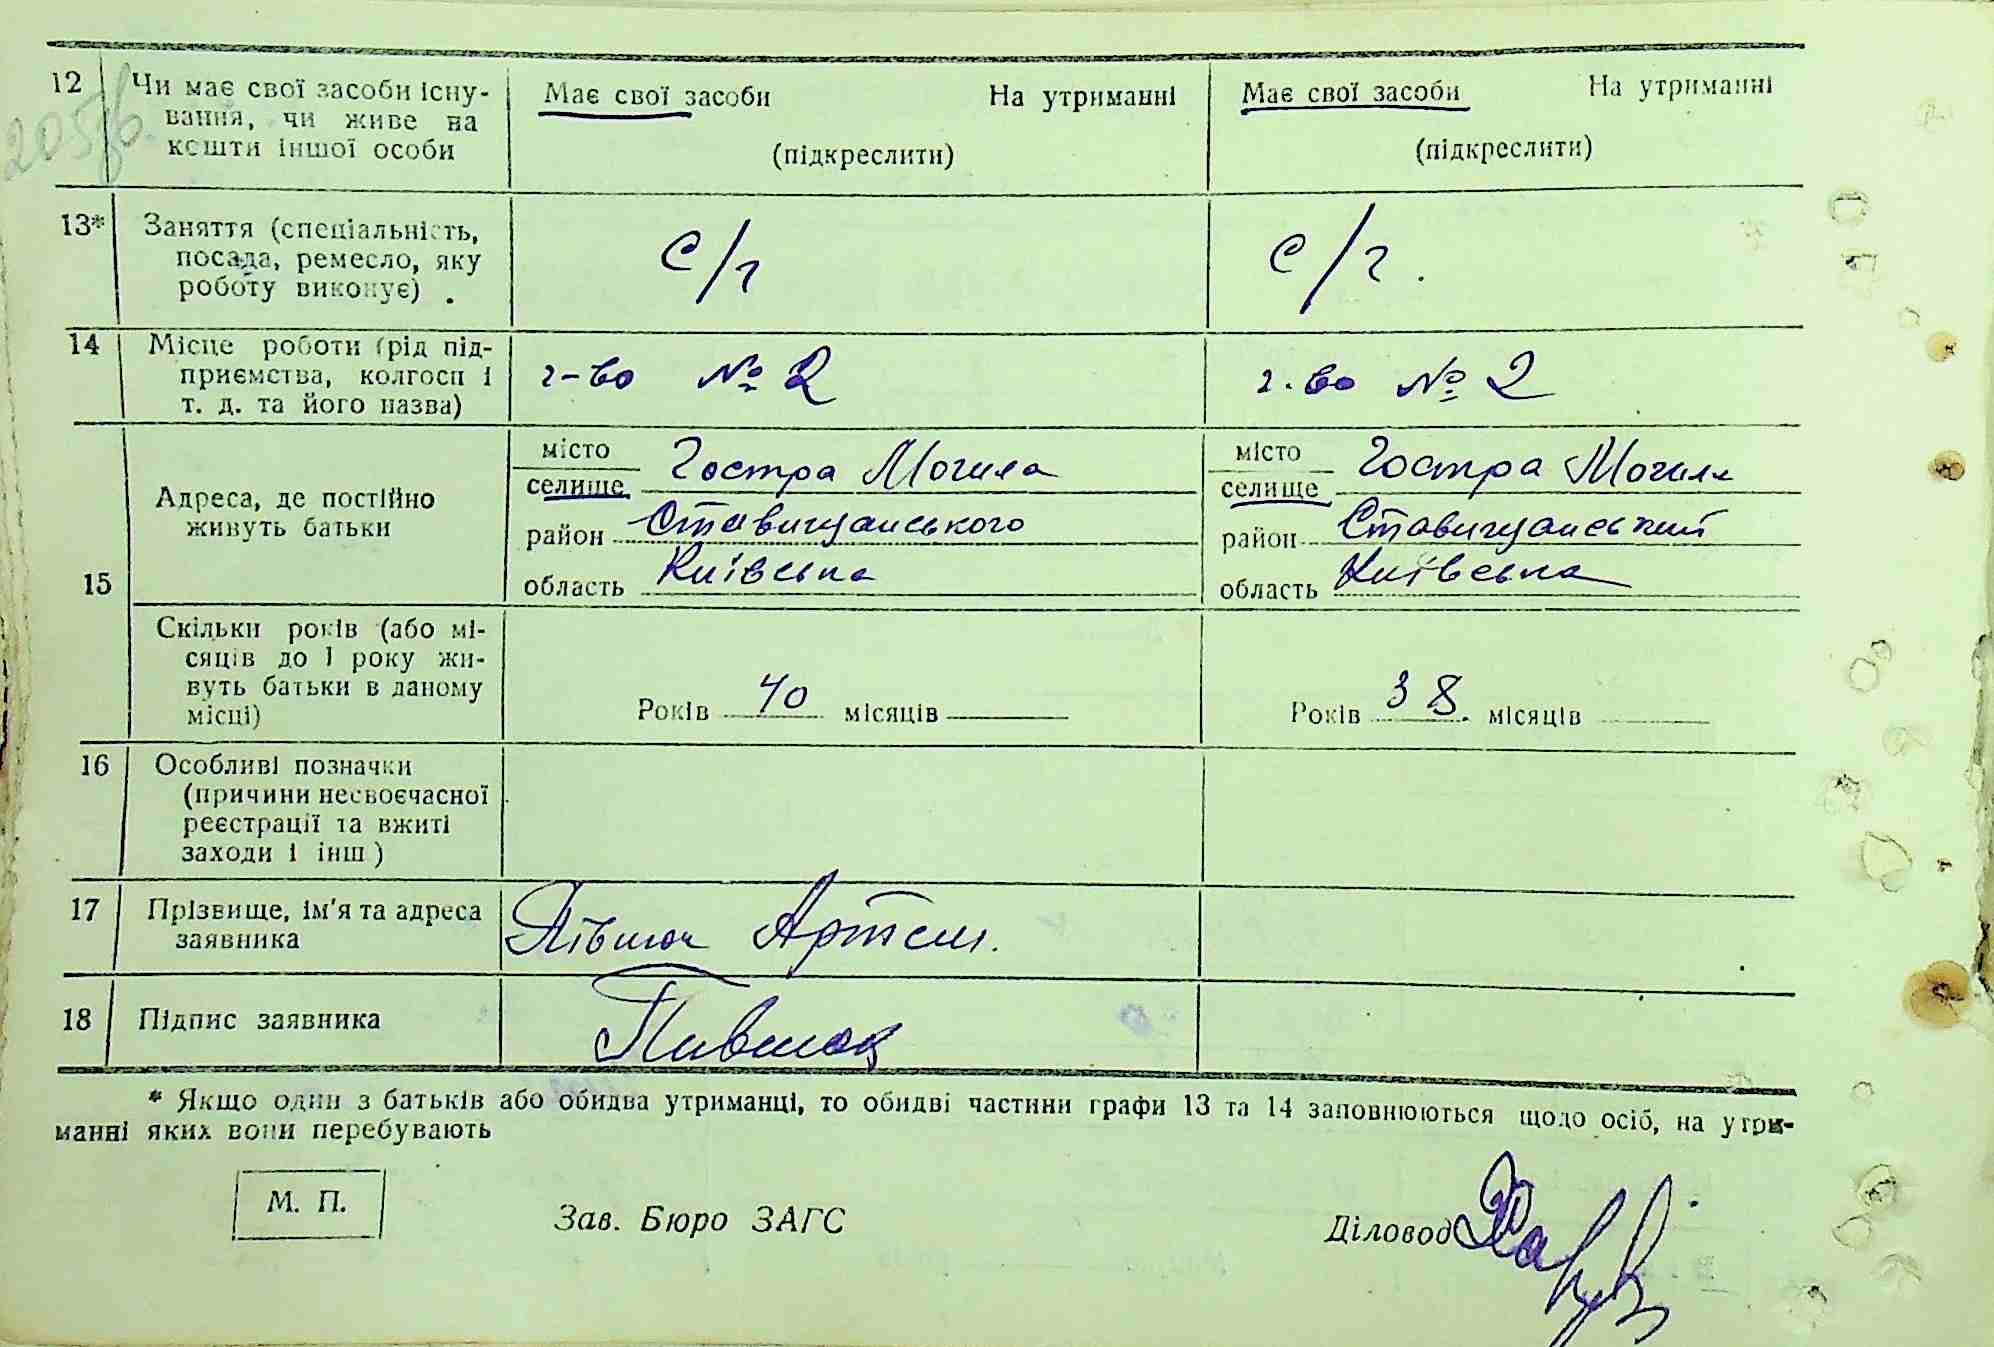 12 Чи має свої засоби існу-
вання, чи живе на
кошти іншої особи
Має свої засоби На утриманні
(підкреслити)
Має свої засоби На утриманні
(підкреслити)
13* Заняття (спеціальність,
посада, ремесло, яку
роботу виконує)
с/г
с/г.
14 Місце роботи (рід під-
приємства, колгосп і
т. д. та його назва)
г-во № 2
г-во № 2
15
Адреса, де постійно
живуть батьки
місто
селище Гостра Могила
район Ставищанського
область Київська
місто
селище Гостра Могила
район Ставищанський
область Київська
Скільки років (або мі-
сяців до 1 року жи-
вуть батьки в даному
місці)
Років 40 місяців
Років 38 місяців
16 Особливі позначки
(причини несвоєчасної
реєстрації та вжиті
заходи і інш)
17 Прізвище, ім'я та адреса
заявника
Півнюк Артем.
18 Підпис заявника
* Якщо один з батьків або обидва утриманці, то обидві частини графи 13 та 14 заповнюються щодо осіб, на утри-
манні яких вони перебувають
М. П.
Зав. Бюро ЗАГС
Діловод